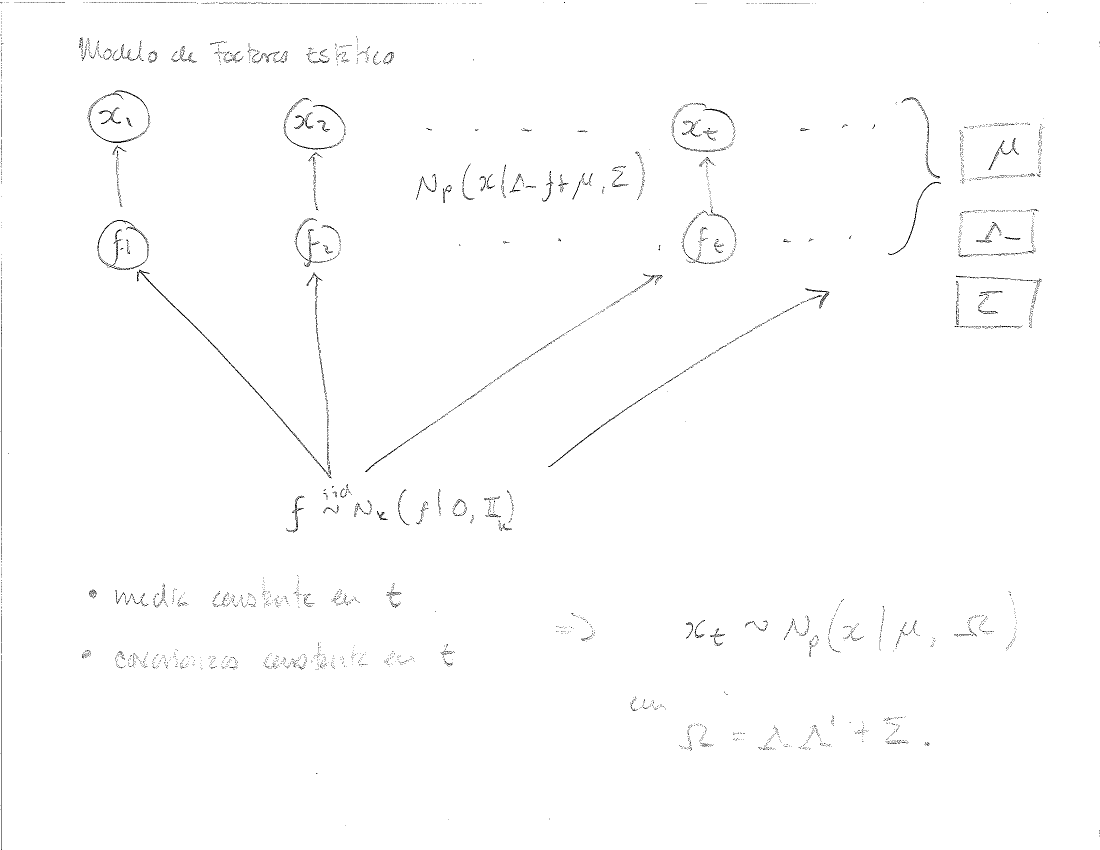 Modelo de Factores Estático
x₁ x₂ . . . . xₜ . . .
μ
Nₚ(x|Λf+μ, Σ)
f₁ f₂ . . . . fₜ . . .
Λ
Σ
f ~iid Nₖ(f|0, Iₖ)
• media constante en t
• covarianzas constante en t
⇒ xₜ ~ Nₚ(x|μ, Ω)
con
Ω = ΛΛ' + Σ.